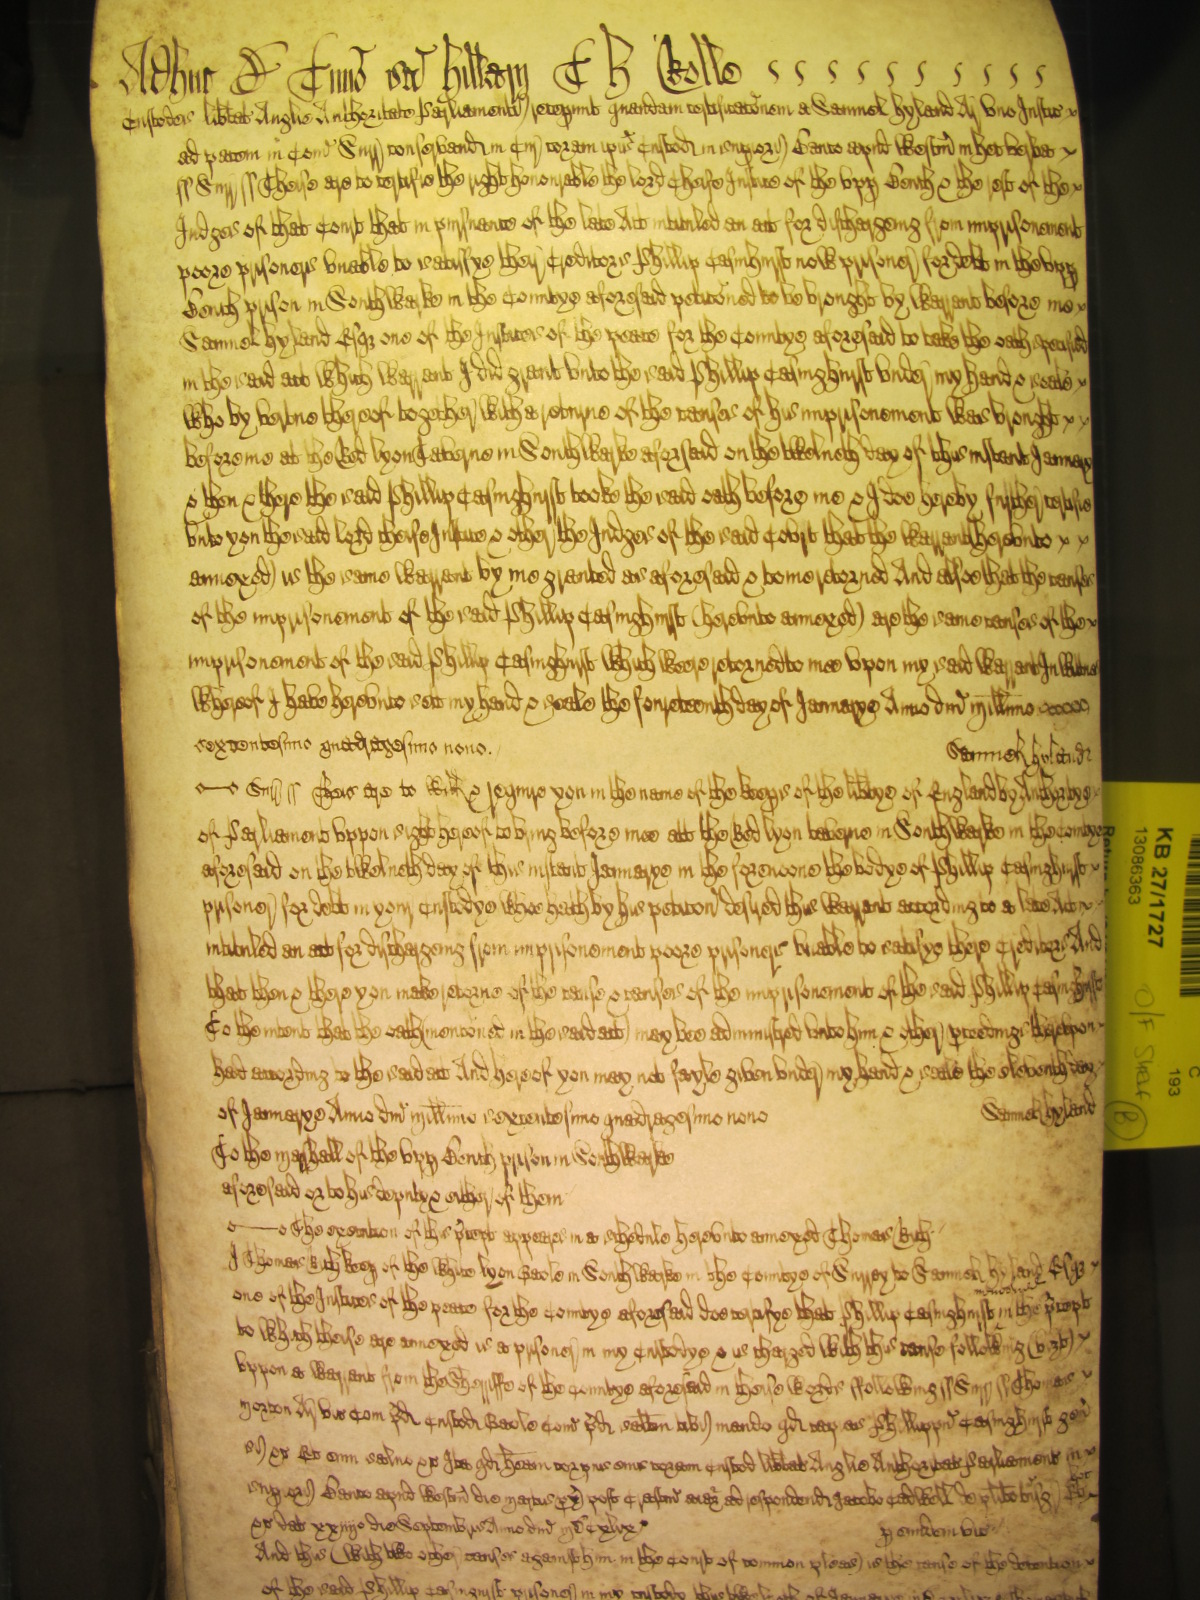 Adhuc de Termino Hillarij Rolle
Custodes libtat Anglie Authoritate Parliamenti recepunt quandam testificaconem a Samuel Hyland Ar vno Justic
ad pacem in Com Surr conservand in Cur coram ipis Custod in superiori Banco apud Westm in hec verba
ss Surr ss Theise are to certifie the right honorable the lord Cheife Justice of the vpp Bench & the rest of the
Judges of that Court that in pursuance of the late Act intituled an act for dischargeing from imprisonement
poore prisoners vnable to satisfye their Creditors Phillip Casinghurst now prisoner for debt in the vpp
Bench prison in Southwarke in the Countye aforesaid peticoned to be brought by Warrant before me
Samuel Hyland Esqr one of the Justices of the peace for the Countye aforesaid to take the oath specified
in the said act Which Warrant I did grant vnto the said Phillip Casinghurst vnder my hand & seale
Who by vertue thereof together With a retorne of the causes of his imprisonement Was brought
before me at the Red lyon Taverne in Southwarke aforesaid on the twelueth day of this instant January
& then & there the said Phillip Casinghurst tooke the said oath before me & I doe hereby further certifie
vnto you the said lord cheife Justice & other the Judges of the said Court that the Warrant herevnto
annexed is the same Warrant by me granted as aforesaid & to me retorned And alsoe that the causes
of the imprisonement of the said Phillip Casinghurst (herevnto annexed) are the same causes of the
imprisonement of the said Phillip Casinghurst Which Were retorned to mee vpon my said Warrant In Witnes
Whereof I have herevnto sett my hand & seale the foureteenth day of Januarye Anno dni millimo
sexcentesimo quadragesimo nono. Samuel Hyland
Surr ss Theis are to Will & require you in the name of the keepers of the libtye of England by Authoritye
of Parliament vppon sight hereof to bring before mee att the Red lyon taverne in Southwarke in the Countye
aforesaid on the twelueth day of this instant Januarye in the forenoone the bodye of Phillip Casinghurst
prisoner for debt in your Custodye Whoe hath by his peticon desired this Warrant according to a late Act
intituled an act for dischargeing from imprisonement poore prisoners vnable to satisfye there Creditors And
that then & there you make retorne of the cause & causes of the imprisonement of the said Phillip Casinghurst
To the intent that the oath mencioned in the said act may bee administred vnto him & other pceedings therevpon
had according to the said act And hereof you may not fayle given vnder my hand & seale the eleventh day
of Januarye Anno dni millimo sexcentesimo quadragesimo nono Samuel Hyland
To the marshall of the vpp Bench prison in Southwarke
aforesaid or to his deputy & either of them
The execution of this precept appeares in a schedule herevnto annexed Thomas Rich
I Thomas Rich keep of the White lyon Gaole in Southwarke in the Countye of Surrey to Samuel Hyland Esqr
one of the Justices of the peace for the Countye aforesaid doe certifye that Phillip Casinghurst menconed in the precept
to Which theise are annexed is a prisoner in my Custodye & is charged With this cause following (vizt)
vppon a Warrant from the Sherriffe of the Countye aforesaid in theise Words following ss Surr ss Thomas
Ar vic Com pdi Custodi Gaole Com pdi saltem mando qd cap Phillippu Casinghurst gen
si &c Et eum salvo &c Ita qd heam corpus eius coram Custod libtat Anglie Authoritat Parliamenti in
superiori Banco apud Westm die martis px post ad respondend Jacobo de plito
&c dat xxiiijo die Septembris Anno dni mdcxlix p eundem vic
And this (With two other causes against him in the Court of Common pleas) is the cause of the detention
of the said Phillip Casinghurst prisoner in my custody
KB 27/1727
13086363
193
C
O/F Shelf
B